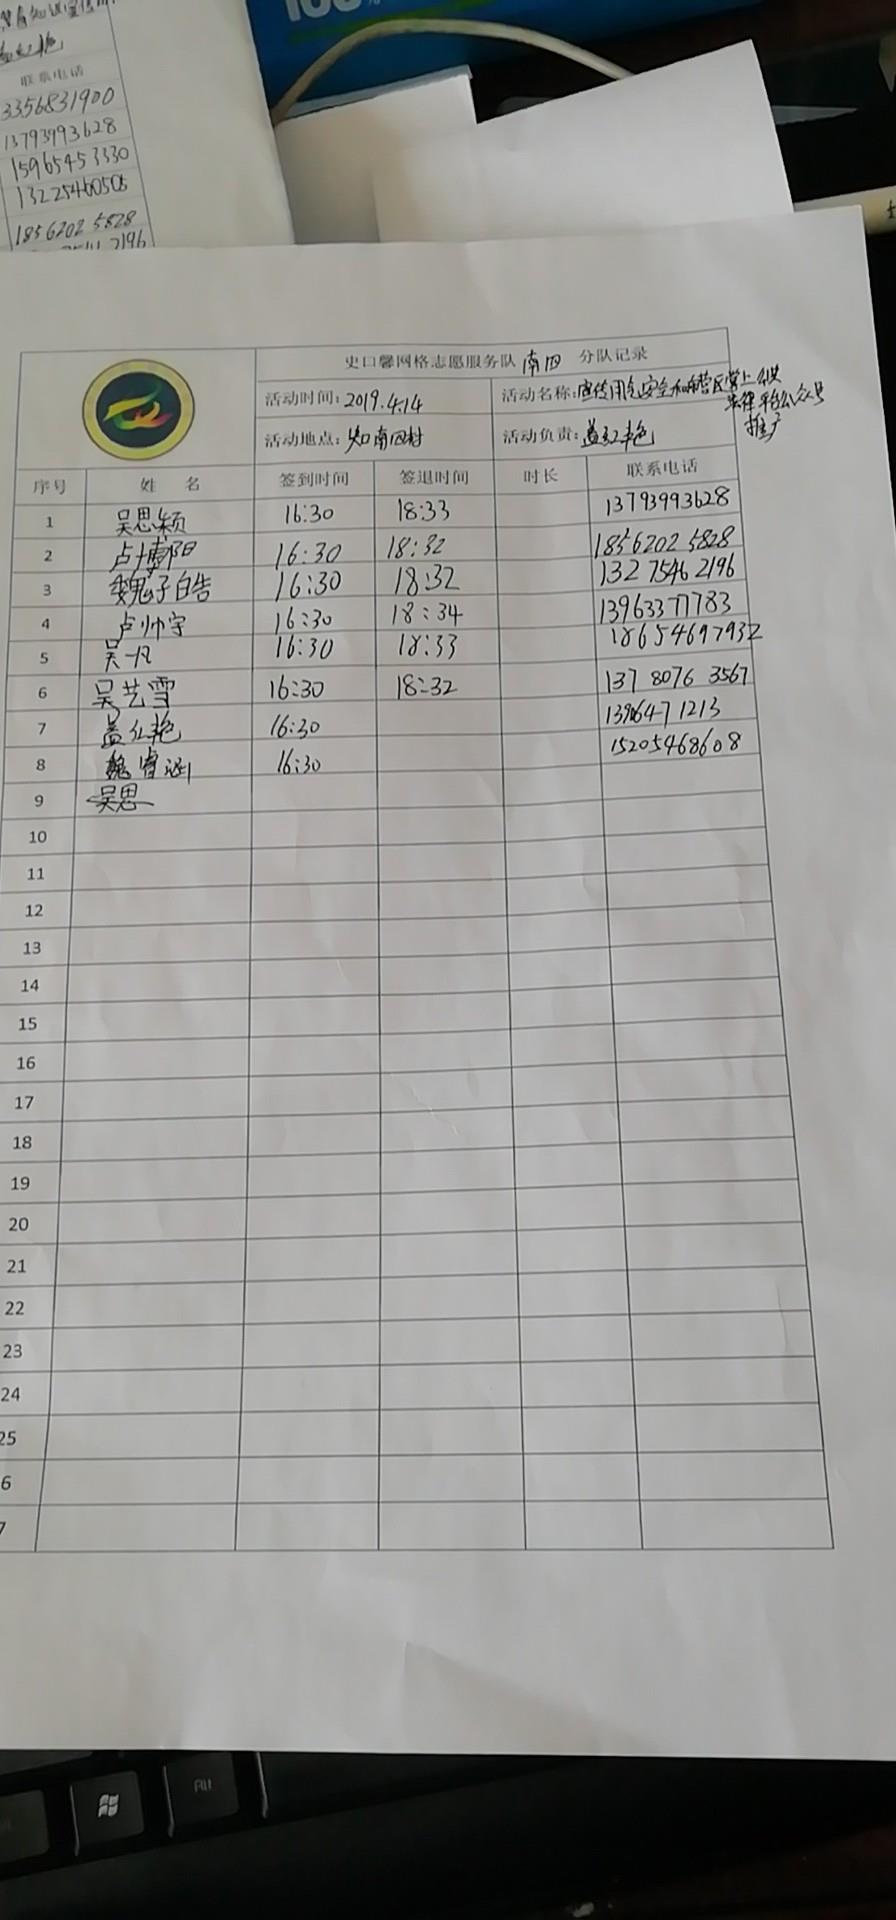 联系电话
3356831900
13793993628
15965453330
13225460505
18562025828
2196
史口馨网格志愿服务队 南四 分队记录
活动时间: 2019.4.14 活动名称: 宣传用气安全和东营区掌上公共
法律平台公众号
推广
活动地点: 史口南四村 活动负责: 盖红艳
序号 姓 名 签到时间 签退时间 时长 联系电话
1 吴思颖 16:30 18:33 13793993628
2 卢博阳 16:30 18:32 18562025828
3 魏子皓 16:30 18:32 13275462196
4 卢帅宇 16:30 18:34 13963377783
5 吴凡 16:30 18:33 18654697932
6 吴艺雪 16:30 18:32 13780763567
7 盖红艳 16:30 13906471213
8 魏睿涵 16:30 15205468608
9 吴思
10
11
12
13
14
15
16
17
18
19
20
21
22
23
24
25
6
7
Alt